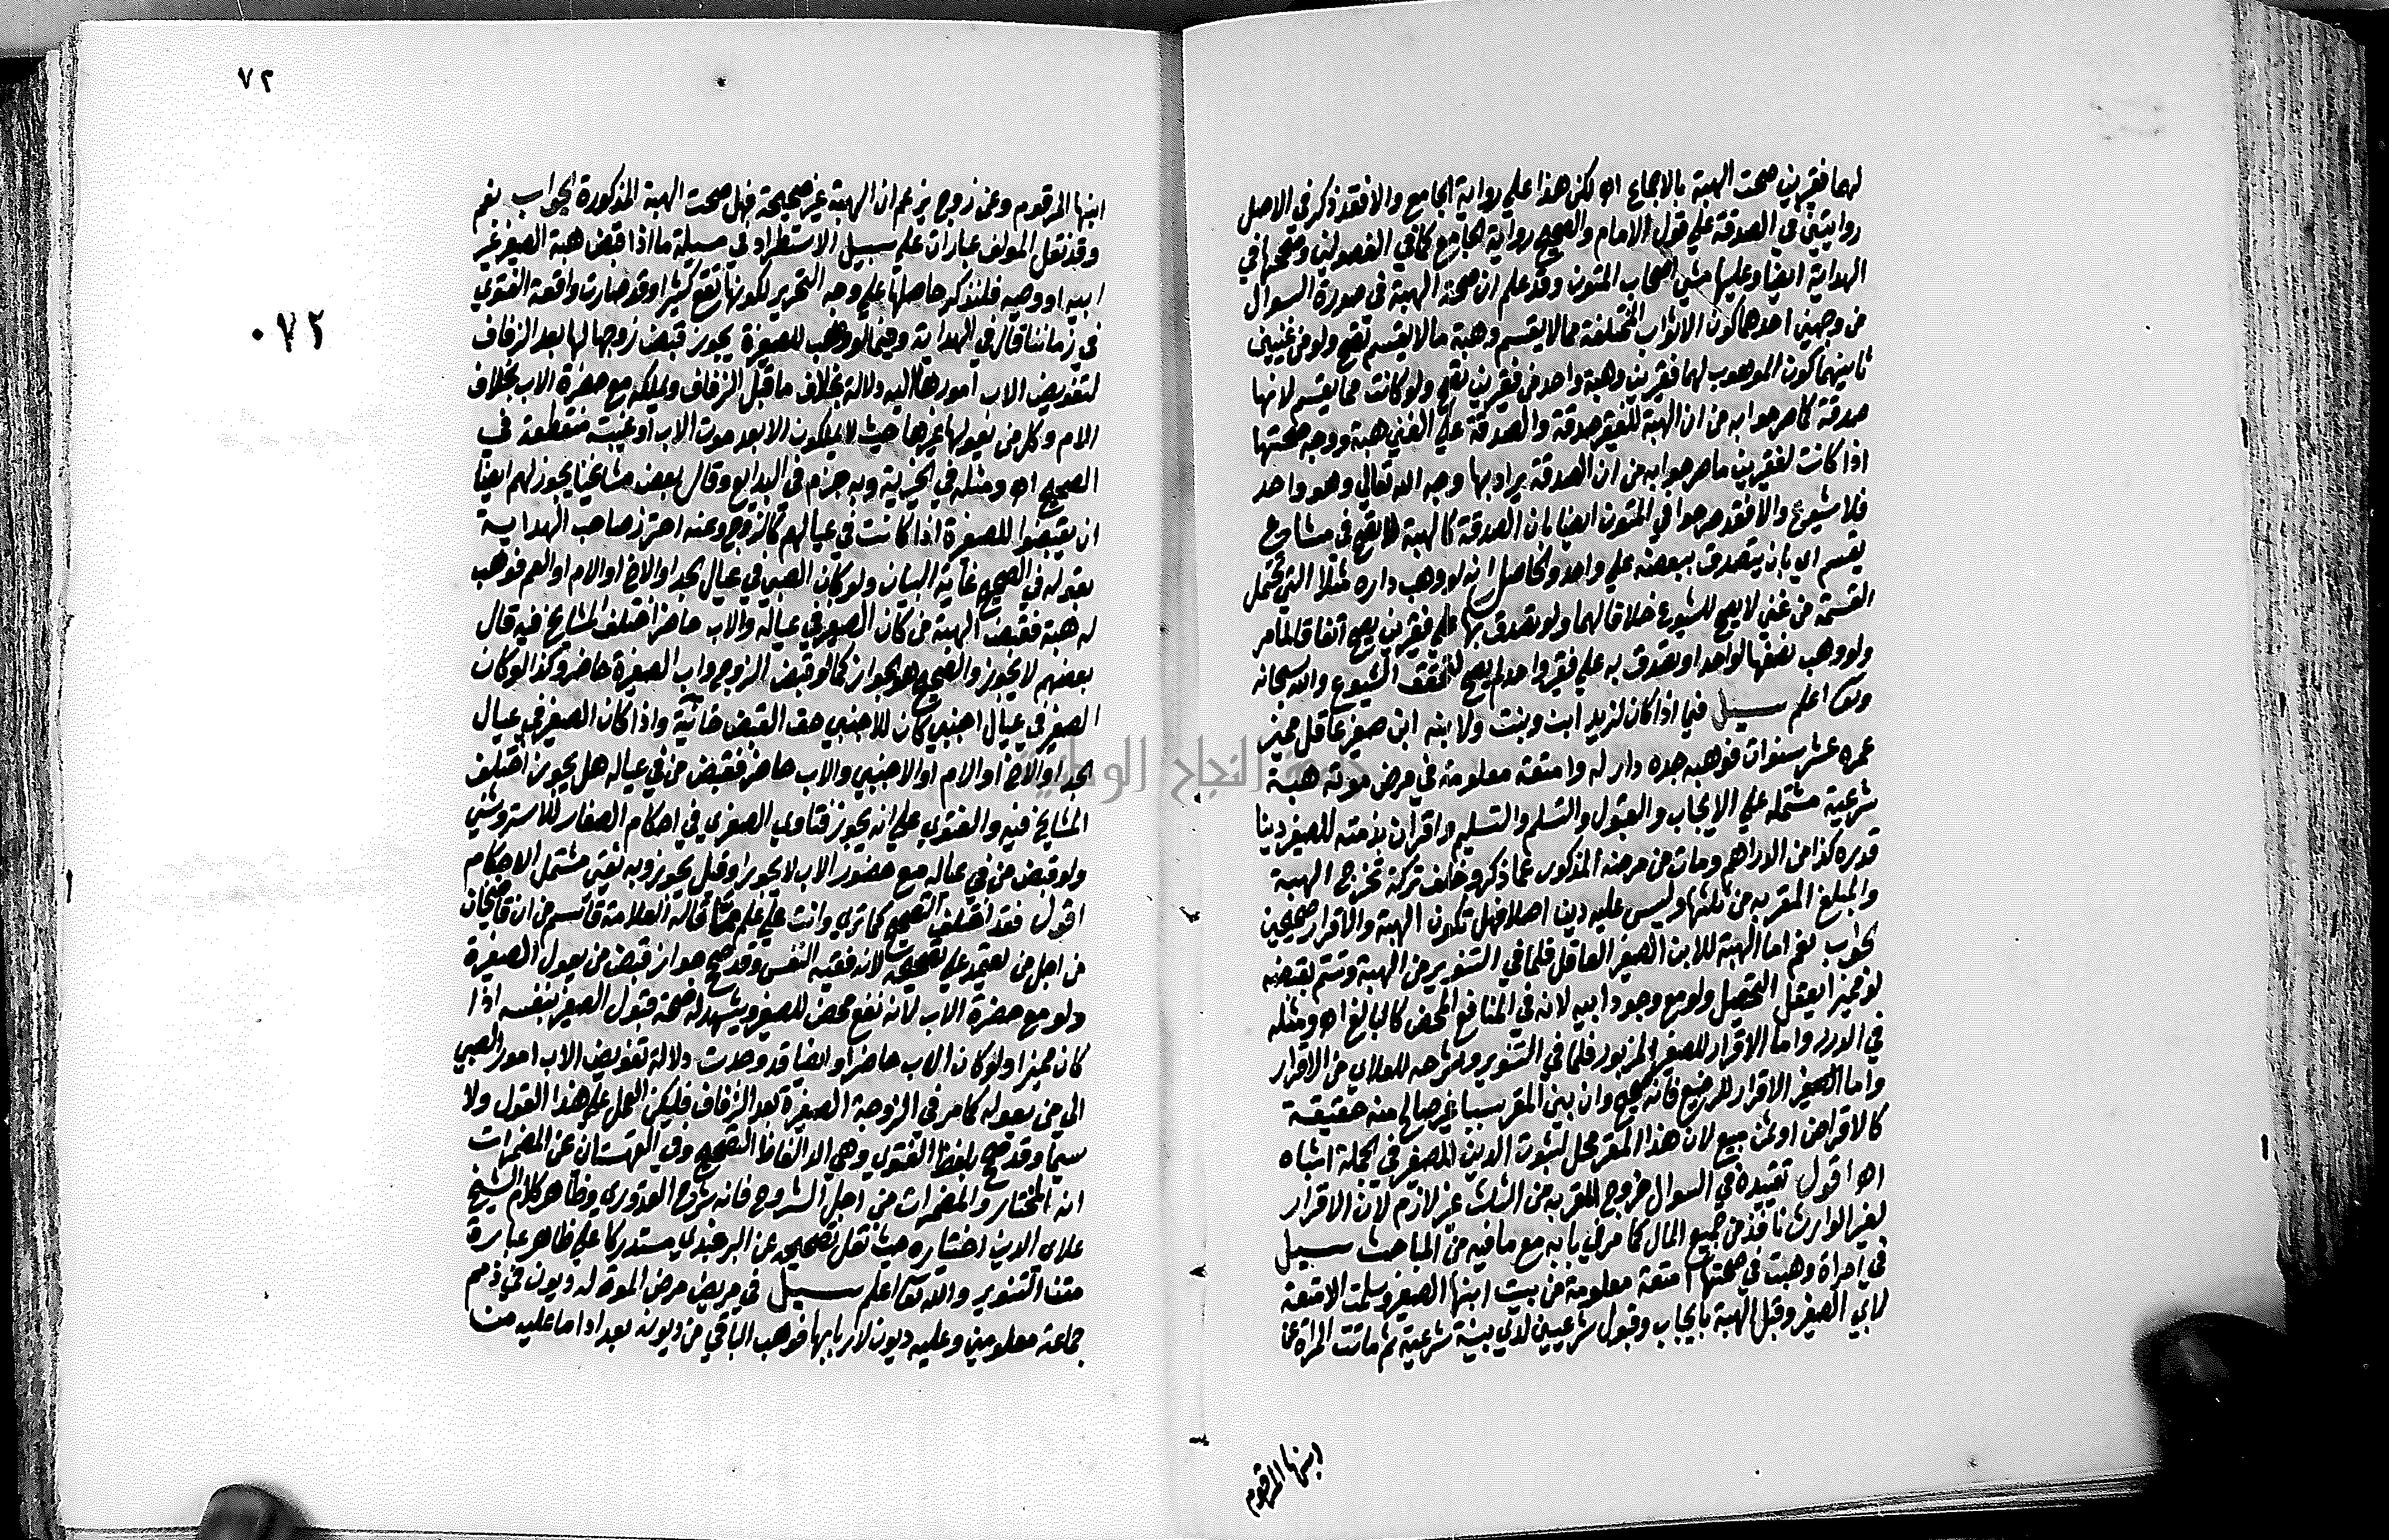 لهما فقيرين صحت الهبة بالاجماع اه لكن هذا علي رواية الجامع والا فقد ذكر في الاصل
روايتين في الصدقة علي قول الامام والصحيح رواية الجامع كما في الفصولين وصححها في
الهداية ايضا وعليها مشي اصحاب المتون وقد علم ان صحة الهبة في صورة السوال
من وجهين احدهما كون الاثواب المختلفة مما لا يقسم وهبة ما لا يقسم تصح ولو من غنيين
ثانيهما كون الموهوب لهما فقيرين وهبة واحد من فقيرين تصح ولو كانت مما يقسم لانها
صدقة كما صرحوا به من ان الهبة للفقير صدقة والصدقة علي الغني هبة ووجه صحتها
اذا كانت لفقيرين ما صرحوا به من ان الصدقة يراد بها وجه الله تعالي وهو واحد
فلا شيوع والا فقد صرحوا في المتون ايضا بان الصدقة كالهبة لا تصح في مشاع
يقسم اي بان يتصدق ببعضه علي واحد والحاصل انه لو وهب داره مثلا التي تحتمل
القسمة من غني لا يصح للشيوع خلافا لهما ولو تصدق بها علي فقيرين يصح اتفاقا لما مر
ولو وهب نصفها لواحد او تصدق به علي فقير واحد لم يصح لتحقق الشيوع والله سبحانه
وتعالى اعلم سيل فيما اذا كان لزيد ابن وبنت ولابنه ابن صغير عاقل مميز
عمره عشر سنوات فوهبه جده دار له وامتعة معلومة في مرض موته هبة
شرعية مشتملة علي الايجاب والقبول والتسلم والتسليم واقر ان بذمته للصغير دينا
قدره كذا من الدراهم ومات من مرضه المذكور عما ذكر وخلف تركة تخرج الهبة
والمبلغ المقر به من ثلثها وليس عليه دين اصلا فهل تكون الهبة والاقرار صحيحين
الجواب نعم اما الهبة للابن الصغير العاقل فلما في التنوير من الهبة وتتم بقبضه
لو مميزا يعقل التحصيل ولو مع وجود ابيه لانه في المنافع المحض كالبالغ اه ومثله
في الدرر واما الاقرار للصغير المزبور فلما في التنوير وشرحه للعلاي من الاقرار
واما الصغير الاقرار للرضيع فانه صحيح وان بين المقر سببا غير صالح منه حقيقة
كالاقراض او ثمن مبيع لان هذا المقر محل لثبوت الدين للصغير في الجملة اشباه
اه اقول تقييده في السوال خروج المقر به من الثلث غير لازم لان الاقرار
لغير الوارث نافذ من جميع المال كما مر في بابه مع ما فيه من المباحث سيل
في امراة وهبت في صحتها امتعة معلومة من بيت ابنها الصغير وسلمت الامتعة
لابي الصغير وقبل الهبة بايجاب وقبول شرعيين لدي بينة شرعية ثم ماتت المراة عن
ابنها المرقوم
٧٢
٠٧٢
ابنها المرقوم وعن زوج يزعم ان الهبة غير صحيحة فهل صحت الهبة المذكورة الجواب نعم
وقد نقل المولف عبارات علي سبيل الاستطراد في مسيلة ما اذا قبض هبة الصغير غير
ابيه او وصيه فلنذكر حاصلها علي وجه التحرير لكونها تقع كثيرا وقد صارت واقعة الفتوي
في زماننا قال في الهداية وفيما لو وهب للصغيرة يجوز قبض زوجها لها بعد الزفاف
لتفويض الاب امورها اليه دلالة بخلاف ما قبل الزفاف ويملكه مع حضرة الاب بخلاف
الام وكل من يعولها غيرها حيث لا يملكون الا بعد موت الاب او غيبته منقطعة في
الصحيح اه ومثله في الخيرية وبه جزم في البدايع وقال بعض مشايخنا يجوز لهم ايضا
ان يقبضوا للصغيرة اذا كانت في عيالهم كالزوج وعنه احترز صاحب الهداية
بقوله في الصحيح غاية البيان ولو كان الصبي في عيال الجد او الاخ او الام او العم فوهب
له هبة فقبض الهبة من كان الصغير في عياله والاب حاضر اختلف المشايخ فيه قال
بعضهم لا يجوز والصحيح هو الجواز كما لو قبض الزوج واب الصغيرة حاضر وكذا لو كان
الصغير في عيال اجنبي كان للاجنبي حق القبض خانية واذا كان الصغير في عيال
الجد او الاخ او الام او الاجنبي والاب حاضر فقبض من في عياله هل يجوز اختلف
المشايخ فيه والفتوي علي انه يجوز فتاوي الصغري في احكام الصغار للاستروشني
ولو قبض من في عياله مع حضور الاب لا يجوز وقيل يجوز وبه نفتي مشتمل الاحكام
اقول فقد اختلف التصحيح كما تري وانت علي علم مما قاله العلامة قاسم من ان قاضيخان
من اجل من يعتمد علي تصحيحه لانه فقيه النفس وقد صحح جواز قبض من يعول الصغيرة
ولو مع حضرة الاب لانه نفع محض للصغير ويشهد له صحة قبول الصغير بنفسه اذا
كان مميزا ولو كان الاب حاضرا وايضا قد وجدت دلالة تفويض الاب امور الصبي
الي من يعوله كما مر في الزوجة الصغيرة بعد الزفاف فليكن العمل علي هذا القول ولا
سيما وقد صحح بلفظ الفتوي وهي الد الفاظ التصحيح وفي القهستان عن المضمرات
انه المختار والمضمرات من اجل الشروح فانه شروح القدوري وظاهر كلام الشيخ
علاي الدين اختياره حيث نقل تصحيحه عن البرجندي مستدركا علي ظاهر عبارة
متن التنوير والله تعالى اعلم سيل في مريض مرض الموت له ديون في ذمم
جماعة معلومين وعليه ديون لاربابها فوهب الباقي من ديونه بعد اداء ما عليه من